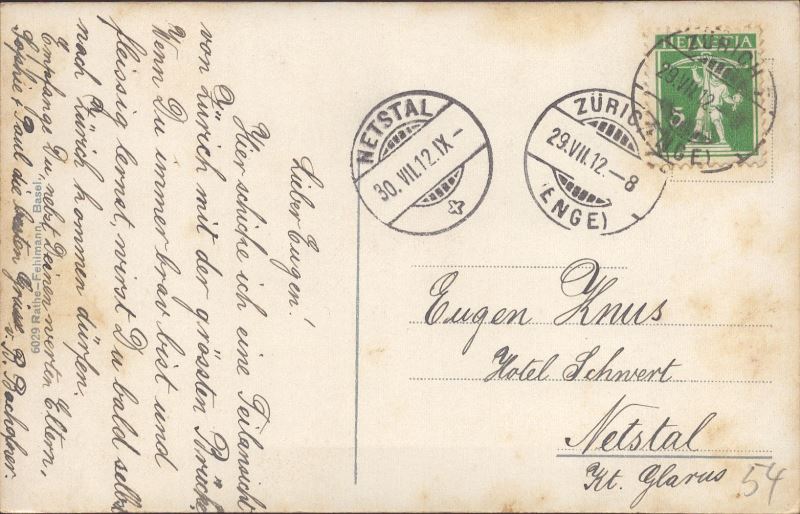 Lieber Eugen!
Hier schicke ich eine Teilansicht
von Zürich mit der grössten Brücke.
Wenn Du immer brav bist und
fleissig lernst, wirst Du bald selbst
nach Zürich kommen dürfen.
Empfange Du, nebst Deinen werten Eltern,
Sophie & Paul die besten Grüsse
v. R. Bachofner.
6029 Rathe-Fehlmann, Basel
NETSTAL
30. VII. 12. IX -
ZÜRICH
29. VII. 12. - 8
(ENGE)
HELVETIA
5
ZÜRICH
29. VII. 12
(ENGE)
Eugen Knus
Hotel Schwert
Netstal
Kt. Glarus
54